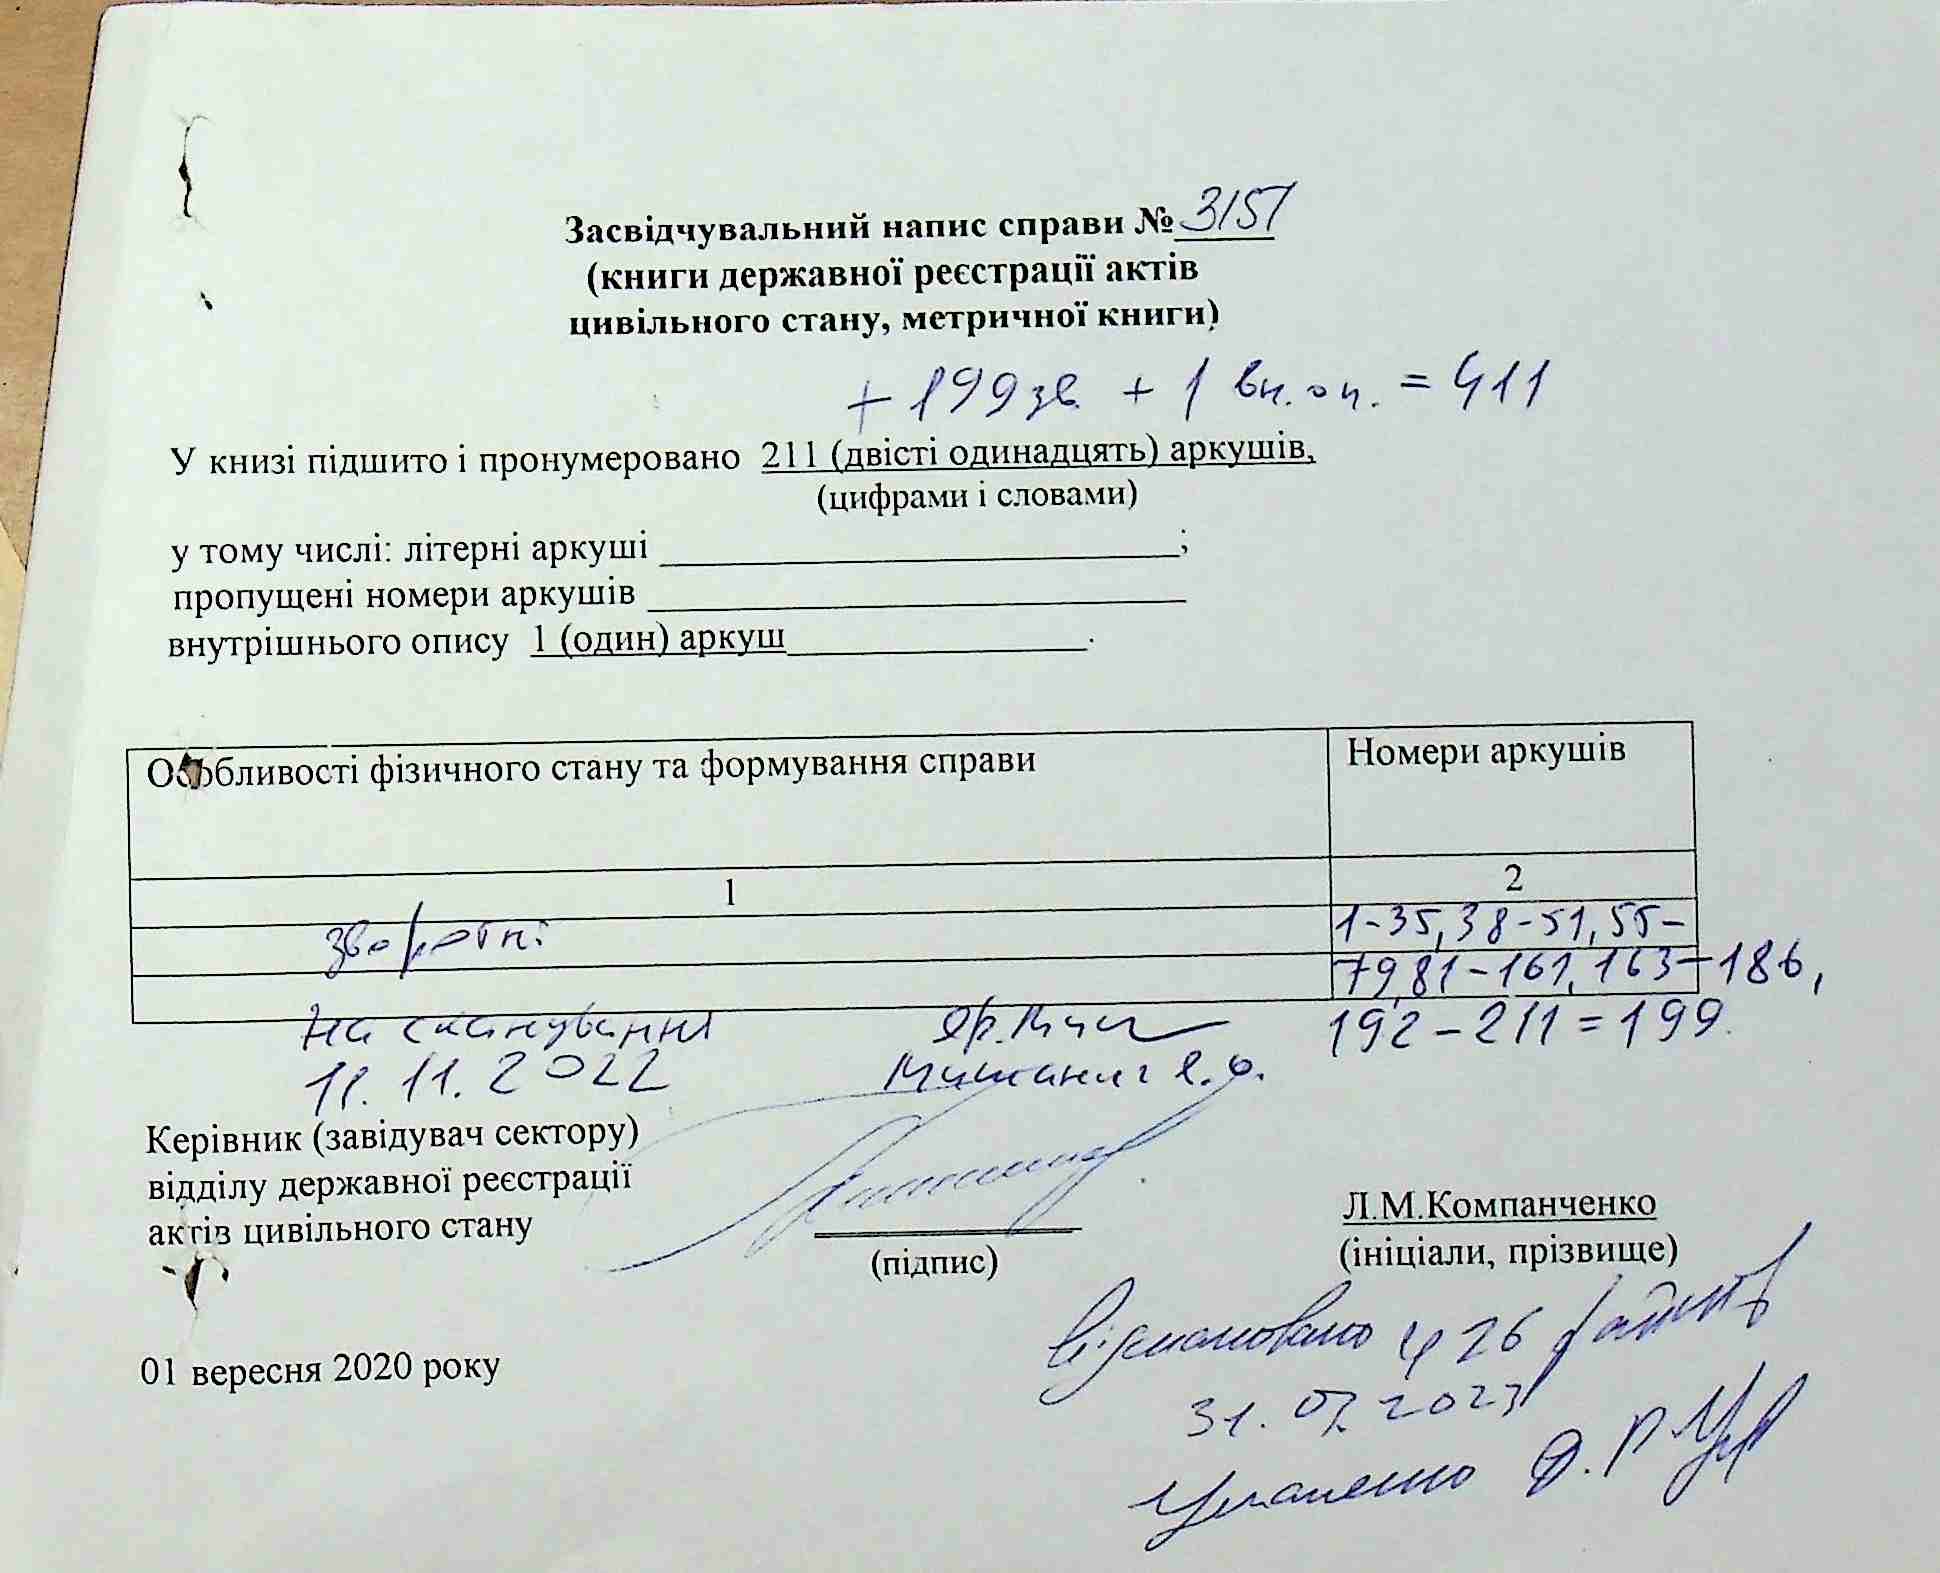 Засвідчувальний напис справи № 3151
(книги державної реєстрації актів
цивільного стану, метричної книги)
+ 199 зв. + 1 вн. оп. = 411
У книзі підшито і пронумеровано 211 (двісті одинадцять) аркушів,
(цифрами і словами)
у тому числі: літерні аркуші ;
пропущені номери аркушів
внутрішнього опису 1 (один) аркуш .
Особливості фізичного стану та формування справи Номери аркушів
1 2
зворотні 1-35, 38-51, 55-
79, 81-161, 163-186,
192-211 = 199.
На сканування
11.11.2022
Керівник (завідувач сектору)
відділу державної реєстрації
актів цивільного стану
(підпис)
Л.М.Компанченко
(ініціали, прізвище)
Відскановано 26
31.07.2023
01 вересня 2020 року